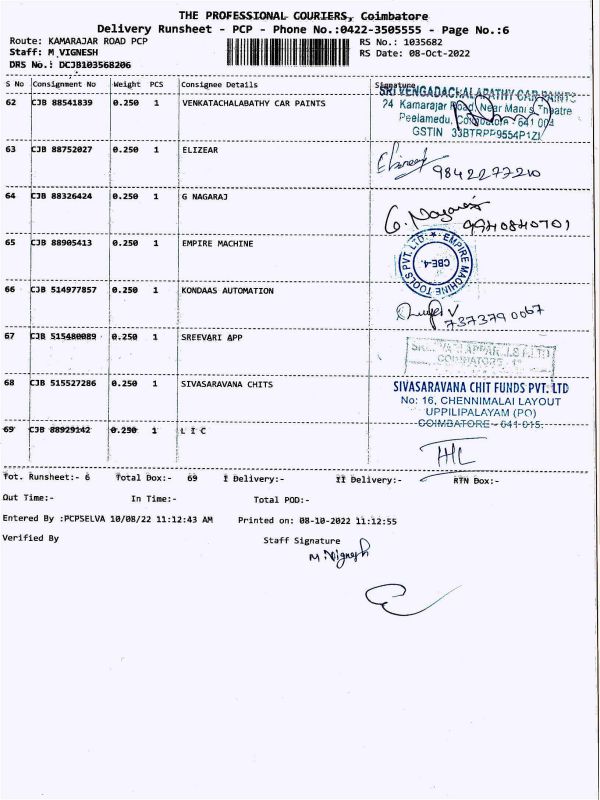 THE PROFESSIONAL COURIERS, Coimbatore
Delivery Runsheet - PCP - Phone No.:0422-3505555 - Page No.:6
Route: KAMARAJAR ROAD PCP
RS No.: 1035682
Staff: M VIGNESH
RS Date: 08-Oct-2022
DRS No.: DCJB103568206
S No Consignment No Weight PCS Consignee Details Signature
62 CJB 88541839 0.250 1 VENKATACHALABATHY CAR PAINTS
SRI VENGADACHALAPATHY CAR PAINTS
24 Kamarajar Road, Near Mani's Theatre
Peelamedu, Coimbatore - 641 004
GSTIN 33BTRPP9554P1ZI
63 CJB 88752027 0.250 1 ELIZEAR
9842277210
64 CJB 88326424 0.250 1 G NAGARAJ
G. Nagaraj
9940840701
65 CJB 88905413 0.250 1 EMPIRE MACHINE
EMPIRE MACHINE TOOLS PVT. LTD.
CBE-4.
66 CJB 514977857 0.250 1 KONDAAS AUTOMATION
7373790067
67 CJB 515480089 0.250 1 SREEVARI APP
COIMBATORE
68 CJB 515527286 0.250 1 SIVASARAVANA CHITS
SIVASARAVANA CHIT FUNDS PVT. LTD
No: 16, CHENNIMALAI LAYOUT
UPPILIPALAYAM (PO)
COIMBATORE - 641 015.
69 CJB 88929142 0.250 1 L I C
Tot. Runsheet:- 6 Total Dox:- 69 I Delivery:- II Delivery:- RTN Dox:-
Out Time:- In Time:- Total POD:-
Entered By :PCPSELVA 10/08/22 11:12:43 AM Printed on: 08-10-2022 11:12:55
Verified By Staff Signature
M. Vignesh